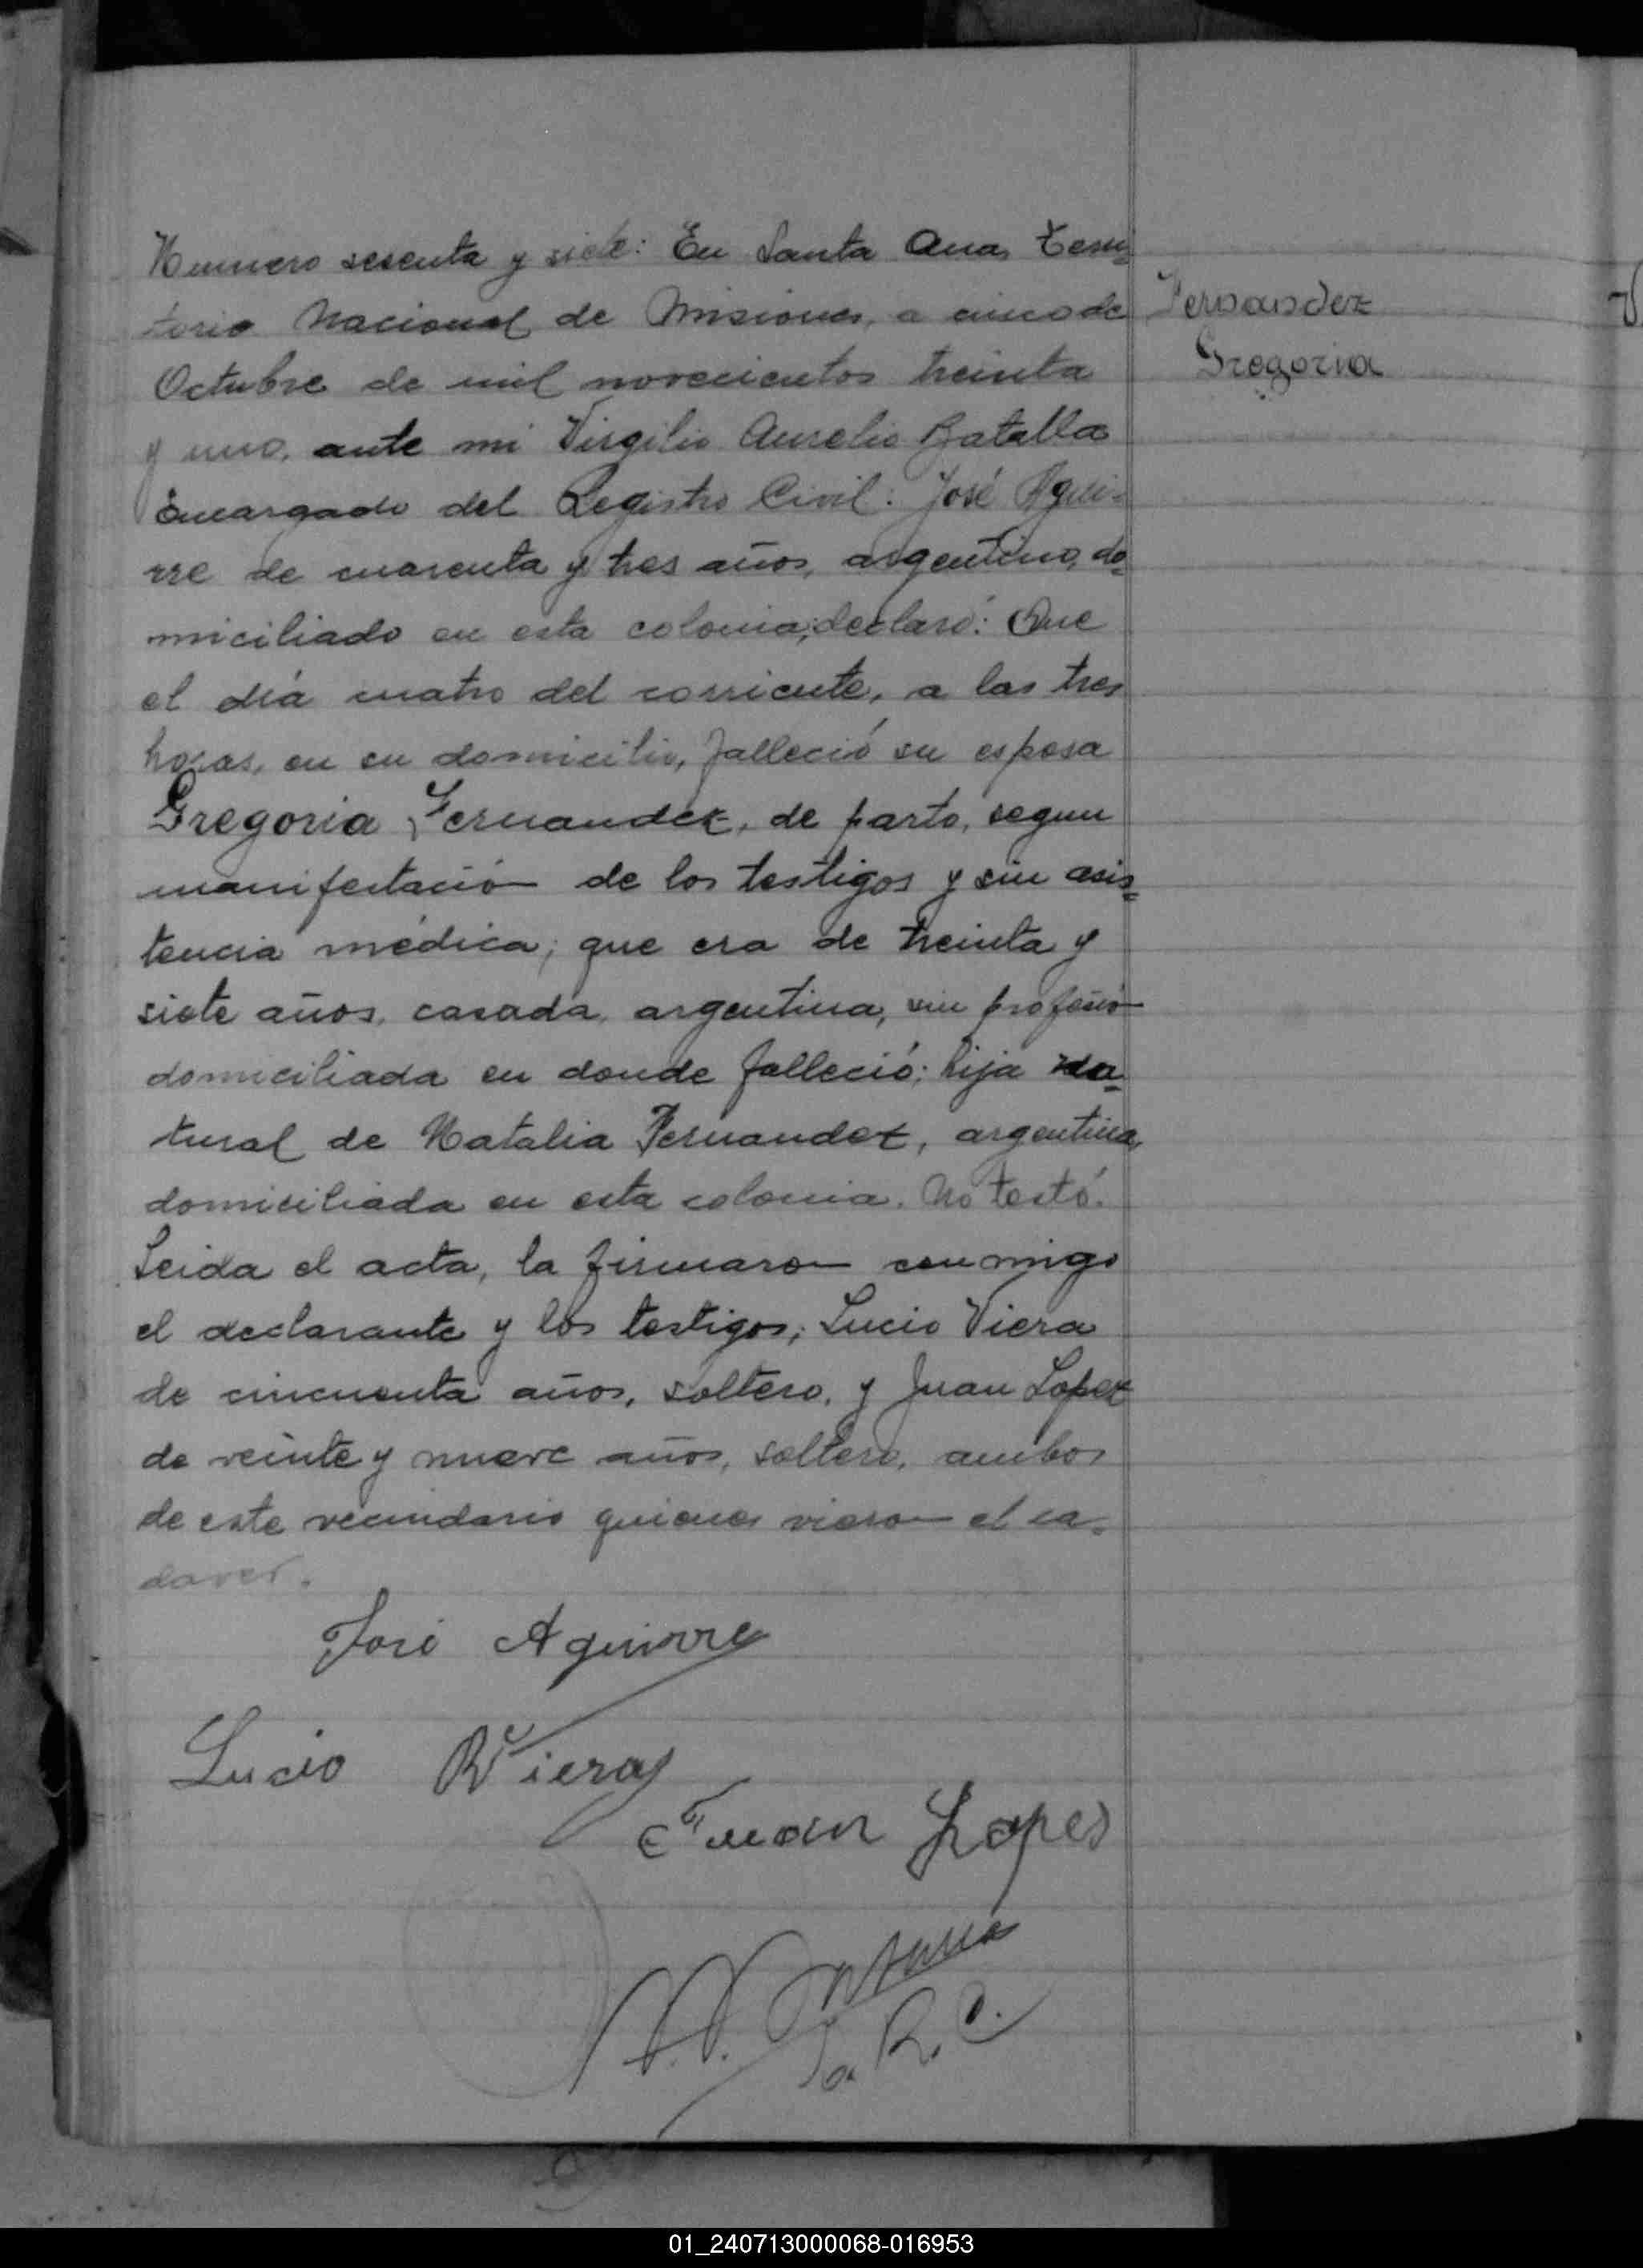 Numero sesenta y siete: En Santa Ana, Terri=
torio Nacional de Misiones, a cinco de
Octubre de mil novecientos treinta
y uno, ante mi Virgilio Aurelio Batalla
Encargado del Registro Civil: José Agui=
rre de cuarenta y tres años, argentino, do=
miciliado en esta colonia, declaró: Que
el día cuatro del corriente, a las tres
horas, en su domicilio, falleció su esposa
Gregoria Fernandez, de parto, segun
manifestació de los testigos y sin asis=
tencia médica; que era de treinta y
siete años, casada, argentina, sin profesió
domiciliada en donde falleció; hija na=
tural de Natalia Fernandez, argentina,
domiciliada en esta colonia. No testó.
Leida el acta, la firmaron conmigo
el declarante y los testigos; Lucio Viera
de cincuenta años, soltero, y Juan Lopez
de veinte y nueve años, soltero, ambos
de este vecindario quienes vieron el ca=
daver.
Fernandez
Gregoria
José Aguirre
Lucio R Viera
Juan Lopes
R. C.
01_240713000068-016953